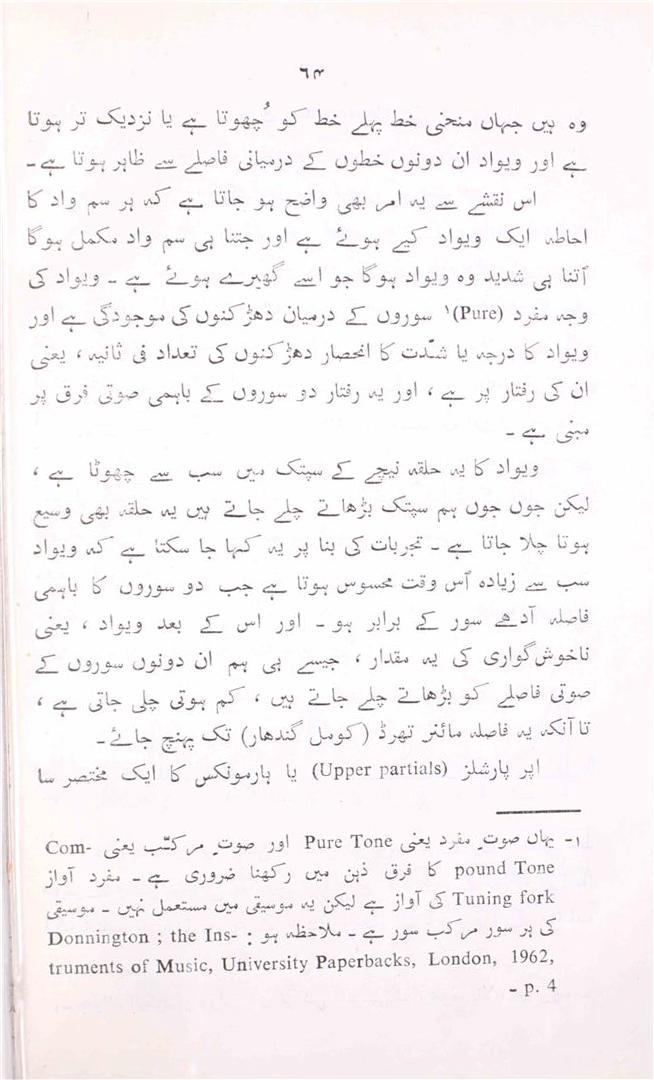 ۶۴
وہ ہیں جہاں منحنی خط پہلے خط کو چُھوتا ہے یا نزدیک تر ہوتا
ہے اور ویواد ان دونوں خطوں کے درمیانی فاصلے سے ظاہر ہوتا ہے۔
اس نقشے سے یہ امر بھی واضح ہو جاتا ہے کہ ہر سم واد کا
احاطہ ایک ویواد کیے ہوئے ہے اور جتنا ہی سم واد مکمل ہوگا
اُتنا ہی شدید وہ ویواد ہوگا جو اسے گھیرے ہوئے ہے ۔ ویواد کی
وجہ مفرد (Pure)۱ سوروں کے درمیان دھڑکنوں کی موجودگی ہے اور
ویواد کا درجہ یا شدّت کا انحصار دھڑکنوں کی تعداد فی ثانیہ ، یعنی
ان کی رفتار پر ہے ، اور یہ رفتار دو سوروں کے باہمی صوتی فرق پر
مبنی ہے ۔
ویواد کا یہ حلقہ نیچے کے سپتک میں سب سے چھوٹا ہے ،
لیکن جوں جوں ہم سپتک بڑھاتے چلے جاتے ہیں یہ حلقہ بھی وسیع
ہوتا چلا جاتا ہے ۔ تجربات کی بنا پر یہ کہا جا سکتا ہے کہ ویواد
سب سے زیادہ اُس وقت محسوس ہوتا ہے جب دو سوروں کا باہمی
فاصلہ آدھے سور کے برابر ہو ۔ اور اس کے بعد ویواد ، یعنی
ناخوش گواری کی یہ مقدار ، جیسے ہی ہم ان دونوں سوروں کے
صوتی فاصلے کو بڑھاتے چلے جاتے ہیں ، کم ہوتی چلی جاتی ہے ،
تا آنکہ یہ فاصلہ مائنر تھرڈ (کومل گندھار) تک پہنچ جائے ۔
اپر پارشلز (Upper partials) یا ہارمونکس کا ایک مختصر سا
۱- یہاں صوتِ مفرد یعنی Pure Tone اور صوتِ مرکّب یعنی Com-
pound Tone کا فرق ذہن میں رکھنا ضروری ہے ۔ مفرد آواز
Tuning fork کی آواز ہے لیکن یہ موسیقی میں مستعمل نہیں ۔ موسیقی
کی ہر سور مرکب سور ہے ۔ ملاحظہ ہو : Donnington ; the Ins-
truments of Music, University Paperbacks, London, 1962,
- p. 4